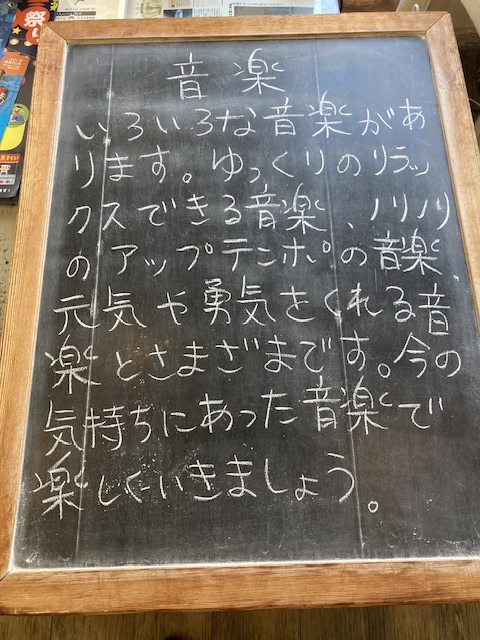 音楽
いろいろな音楽があ
ります。ゆっくりのリラッ
クスできる音楽、ノリノリ
のアップテンポの音楽、
元気や勇気をくれる音
楽とさまざまです。今の
気持ちにあった音楽で
楽しくいきましょう。
祭り